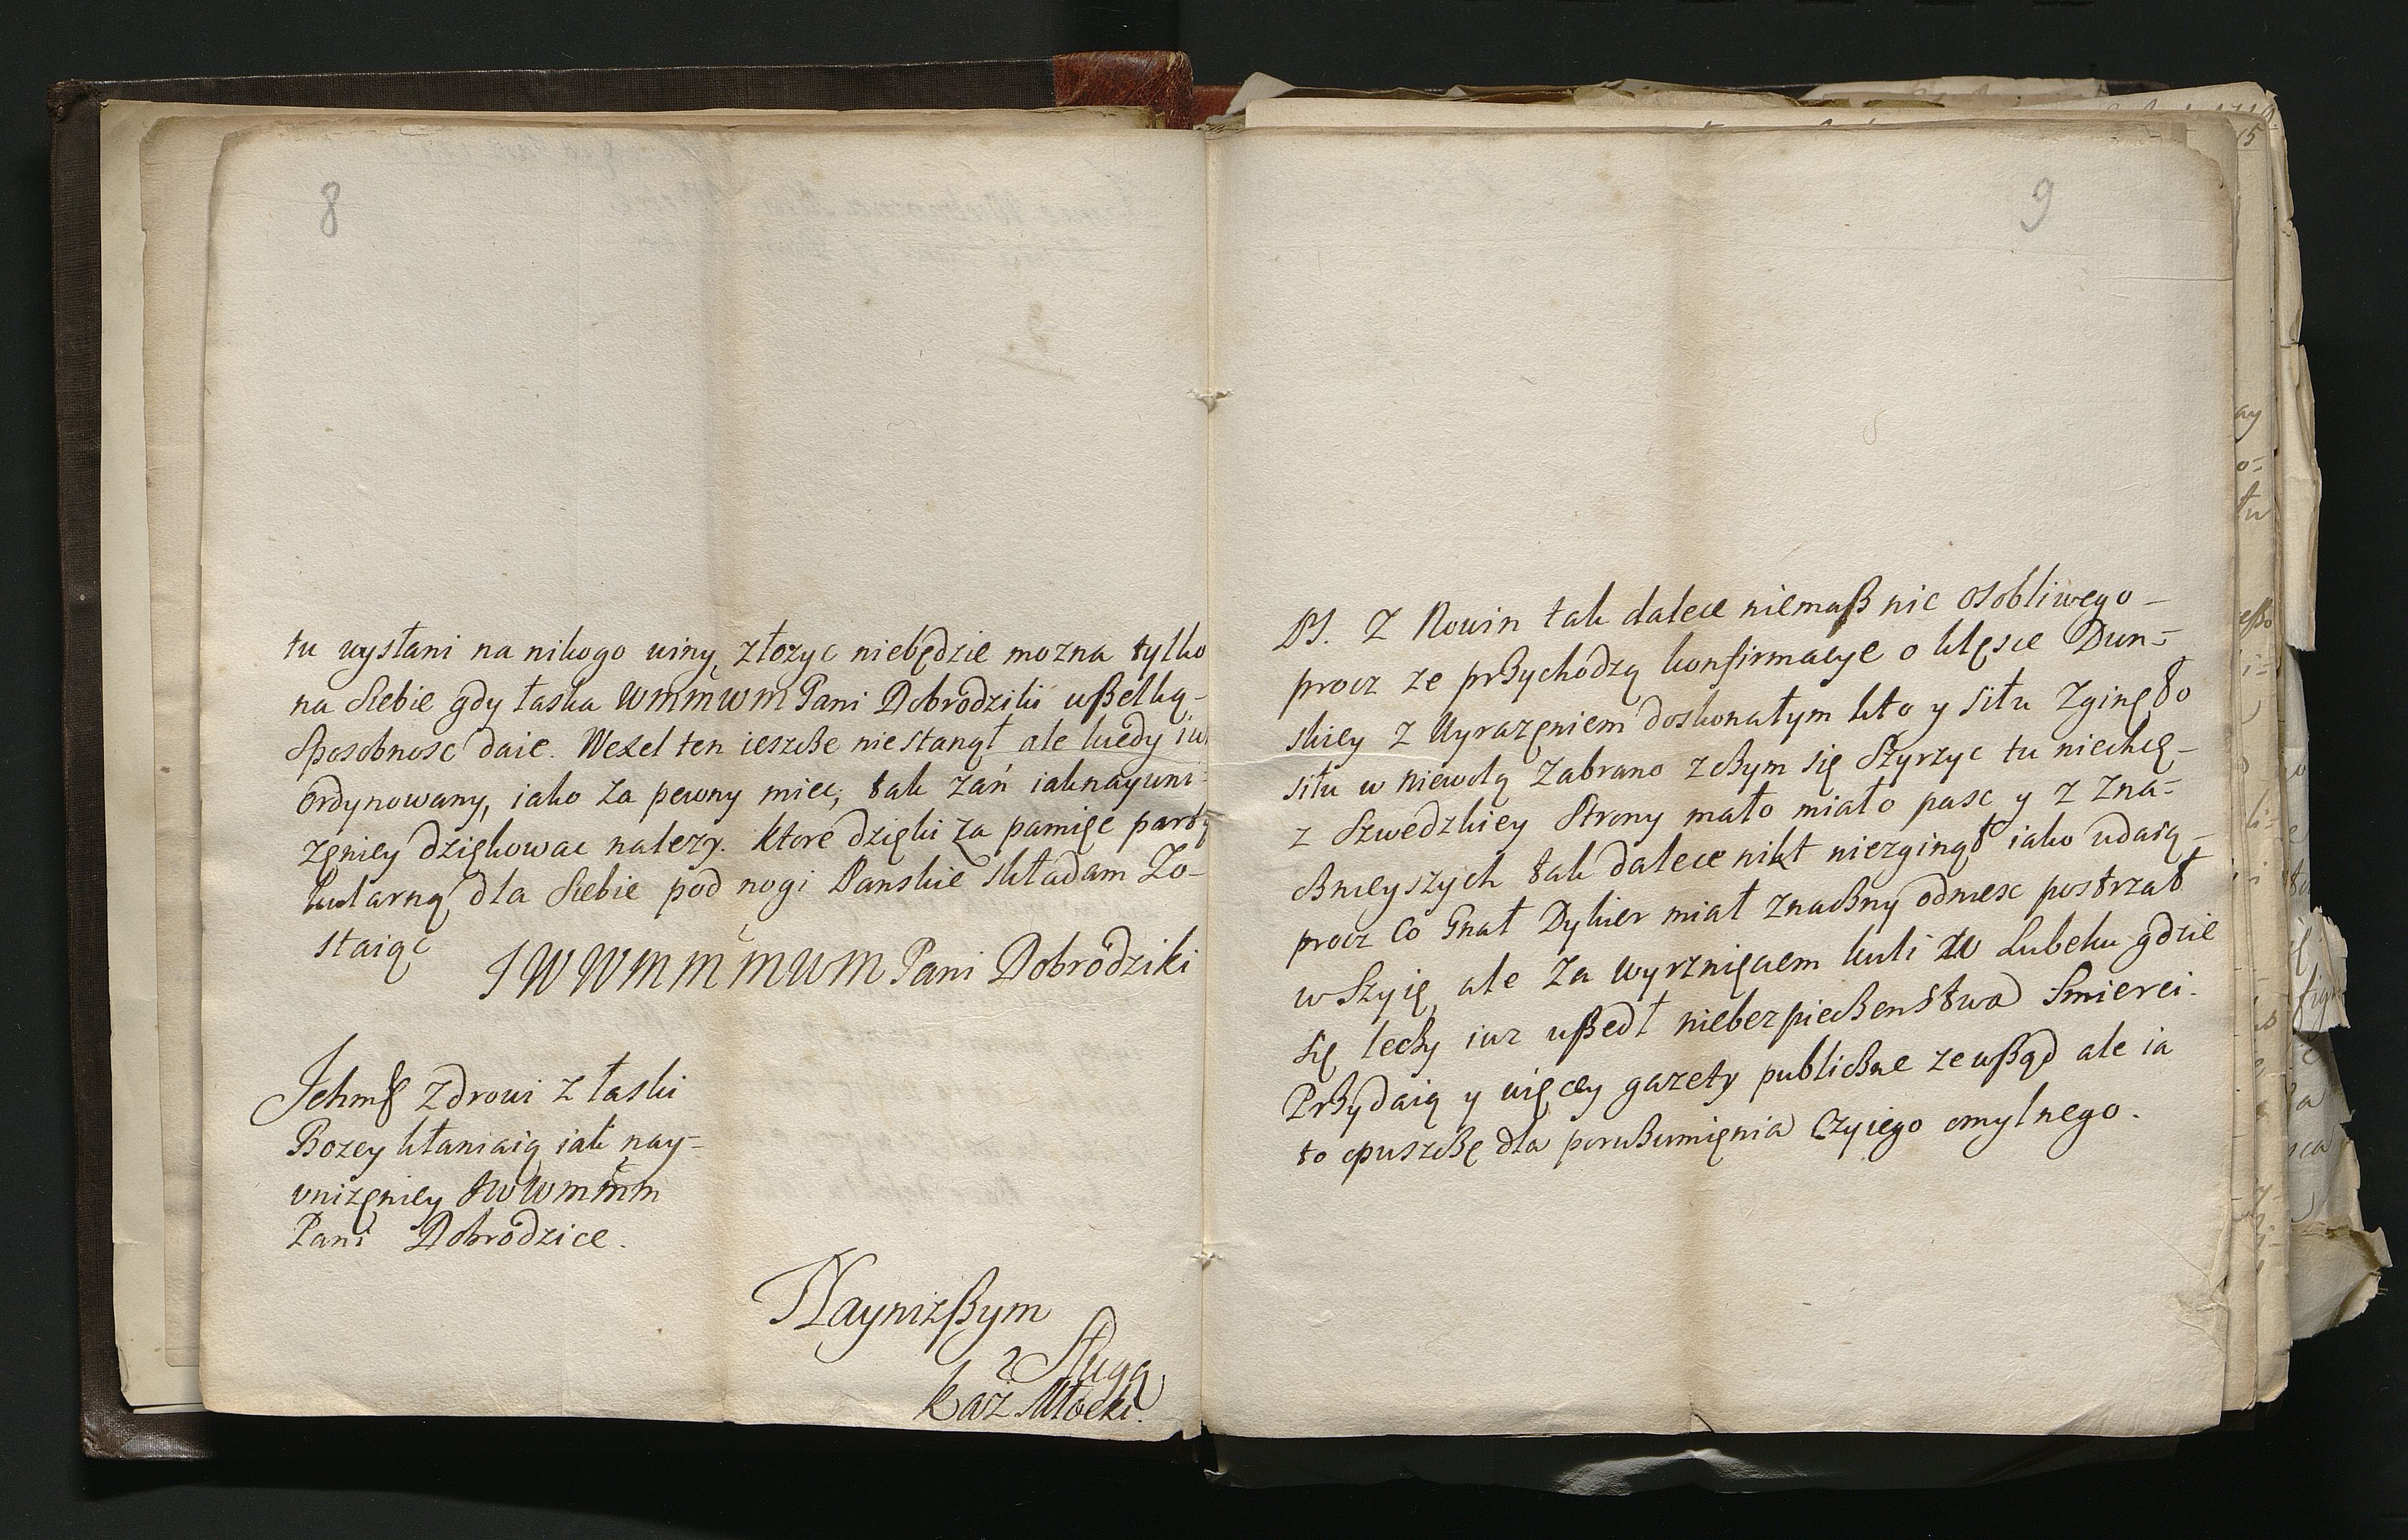 8
tu wysłani na nikogo winy złożyc niebędzie mozna tylko
na siebie gdy łaska WMMWM Pani Dobrodziki wßelką-
sposobnosc daie. Wexel ten ieszcze niestanął, ale kiedy iuz
ordynowany, iako za pewny miec, tak zań iaknayuni-
zęniey dziękowac nalezy. ktore dzięki za pamięc party
kularną dla siebie pod nogi Panskie składam Zo-
staiąc
JWWMMMWM Pani Dobrodziki
Jchmć zdrowi z łaski
Bozey kłaniaią iak nay-
unizęniey JWWMMM
Pani Dobrodzice.
Nayniżßym
Sługą
Kaź Młocki.
9
PS. Z Nowin tak dalece niemaß nic osobliwego-
procz ze przychodzą konfirmacye o klęsce Dun-
skiey z wyrazęniem doskonałym kto y siłu zginęło
siłu w niewolą zabrano z czym się szyrzyc tu niechcę-
z Szwedzkiey strony mało miało pasc y z zna-
cznieyszych tak dalece nikt niezginął iako udaią-
procz co Gnał Dyker miał znaczny odniesc postrzał
w szyię, ale za wyrznięciem kuli w Lubeku gdzie
się leczy iuz ußedł niebezpieczenstwa smierci.
Przydaią y więcey gazety publiczne zewßąd ale ia
to opuszczę dla porozumięnia czyiego omylnego.
15
ay
o-
tu